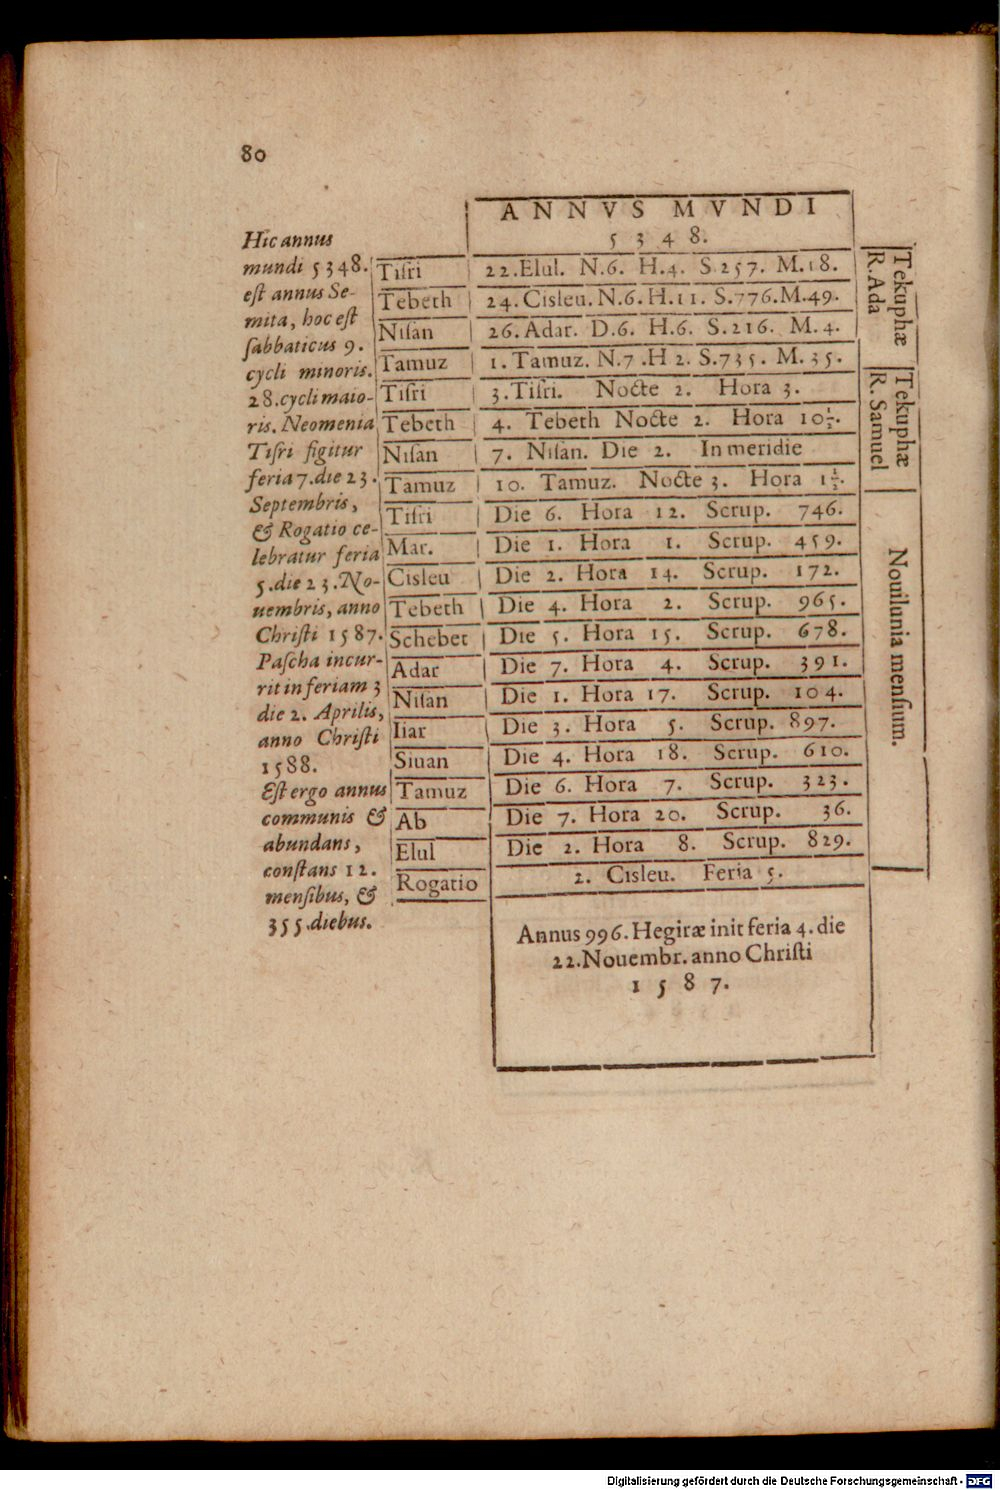 80
Hic annus
mundi 5348.
est annus Se-
mita, hoc est
sabbaticus 9.
cycli minoris.
28. cycli maio-
ris. Neomenia
Tisri figitur
feria 7. die 23.
Septembris,
& Rogatio ce-
lebratur feria
5. die 23. No-
uembris, anno
Christi 1587.
Pascha incur-
rit in feriam 3
die 2. Aprilis,
anno Christi
1588.
Est ergo annus
communis &
abundans,
constans 12.
mensibus, &
355. diebus.
ANNVS MVNDI
5348.
Tisri 22. Elul. N.6. H.4. S.257. M.18.
Tebeth 24. Cisleu. N.6. H.11. S.776. M.49.
Nisan 26. Adar. D.6. H.6. S.216. M.4.
Tamuz 1. Tamuz. N.7. H 2. S.735. M.35.
Tisri 3. Tisri. Nocte 2. Hora 3.
Tebeth 4. Tebeth Nocte 2. Hora 10 1/2.
Nisan 7. Nisan. Die 2. In meridie
Tamuz 10. Tamuz. Nocte 3. Hora 1 1/2.
Tisri Die 6. Hora 12. Scrup. 746.
Mar. Die 1. Hora 1. Scrup. 459.
Cisleu Die 2. Hora 14. Scrup. 172.
Tebeth Die 4. Hora 2. Scrup. 965.
Schebet Die 5. Hora 15. Scrup. 678.
Adar Die 7. Hora 4. Scrup. 391.
Nisan Die 1. Hora 17. Scrup. 104.
Iiar Die 3. Hora 5. Scrup. 897.
Siuan Die 4. Hora 18. Scrup. 610.
Tamuz Die 6. Hora 7. Scrup. 323.
Ab Die 7. Hora 20. Scrup. 36.
Elul Die 2. Hora 8. Scrup. 829.
Rogatio 2. Cisleu. Feria 5.
Tekuphæ
R. Ada
Tekuphæ
R. Samuel
Nouilunia mensium.
Annus 996. Hegiræ init feria 4. die
22. Nouembr. anno Christi
1587.
Digitalisierung gefördert durch die Deutsche Forschungsgemeinschaft - DFG